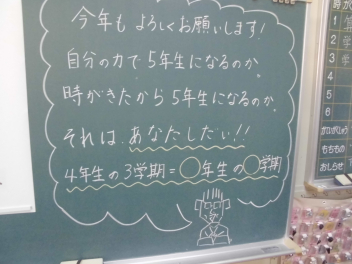 今年もよろしくお願いします!
自分の力で5年生になるのか。
時がきたから5年生になるのか。
それは、あなたしだい!!
4年生の3学期=○年生の○学期
時
1
2
3
4
5
6
かだいがくしゅう
もちもの
おしらせ